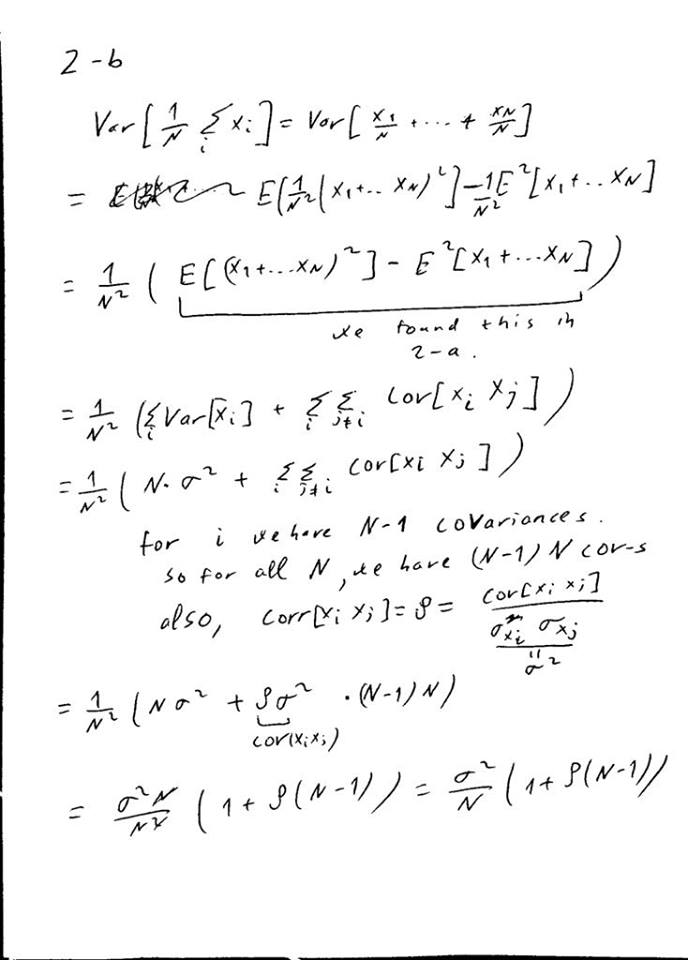 2-b
Var[1/N Σ_i x_i] = Var[x_1/N + ... + x_N/N]
= E[1/N²(x_1+.. x_N)²] - 1/N² E²[x_1+..x_N]
= 1/N² ( E[(x_1+...x_N)²] - E²[x_1+...x_N] )
we found this in
2-a.
= 1/N² (Σ_i Var[x_i] + Σ_i Σ_{j≠i} Cov[x_i x_j])
= 1/N² ( N·σ² + Σ_i Σ_{j≠i} Cov[x_i x_j])
for i we have N-1 covariances.
so for all N, we have (N-1)N cov-s
also, corr[x_i x_j] = ρ = cov[x_i x_j] / σ_{x_i} σ_{x_j}
"
σ²
= 1/N² (Nσ² + ρσ² ·(N-1)N)
cov(x_i x_j)
= σ²N/N² (1+ρ(N-1)) = σ²/N (1+ρ(N-1))